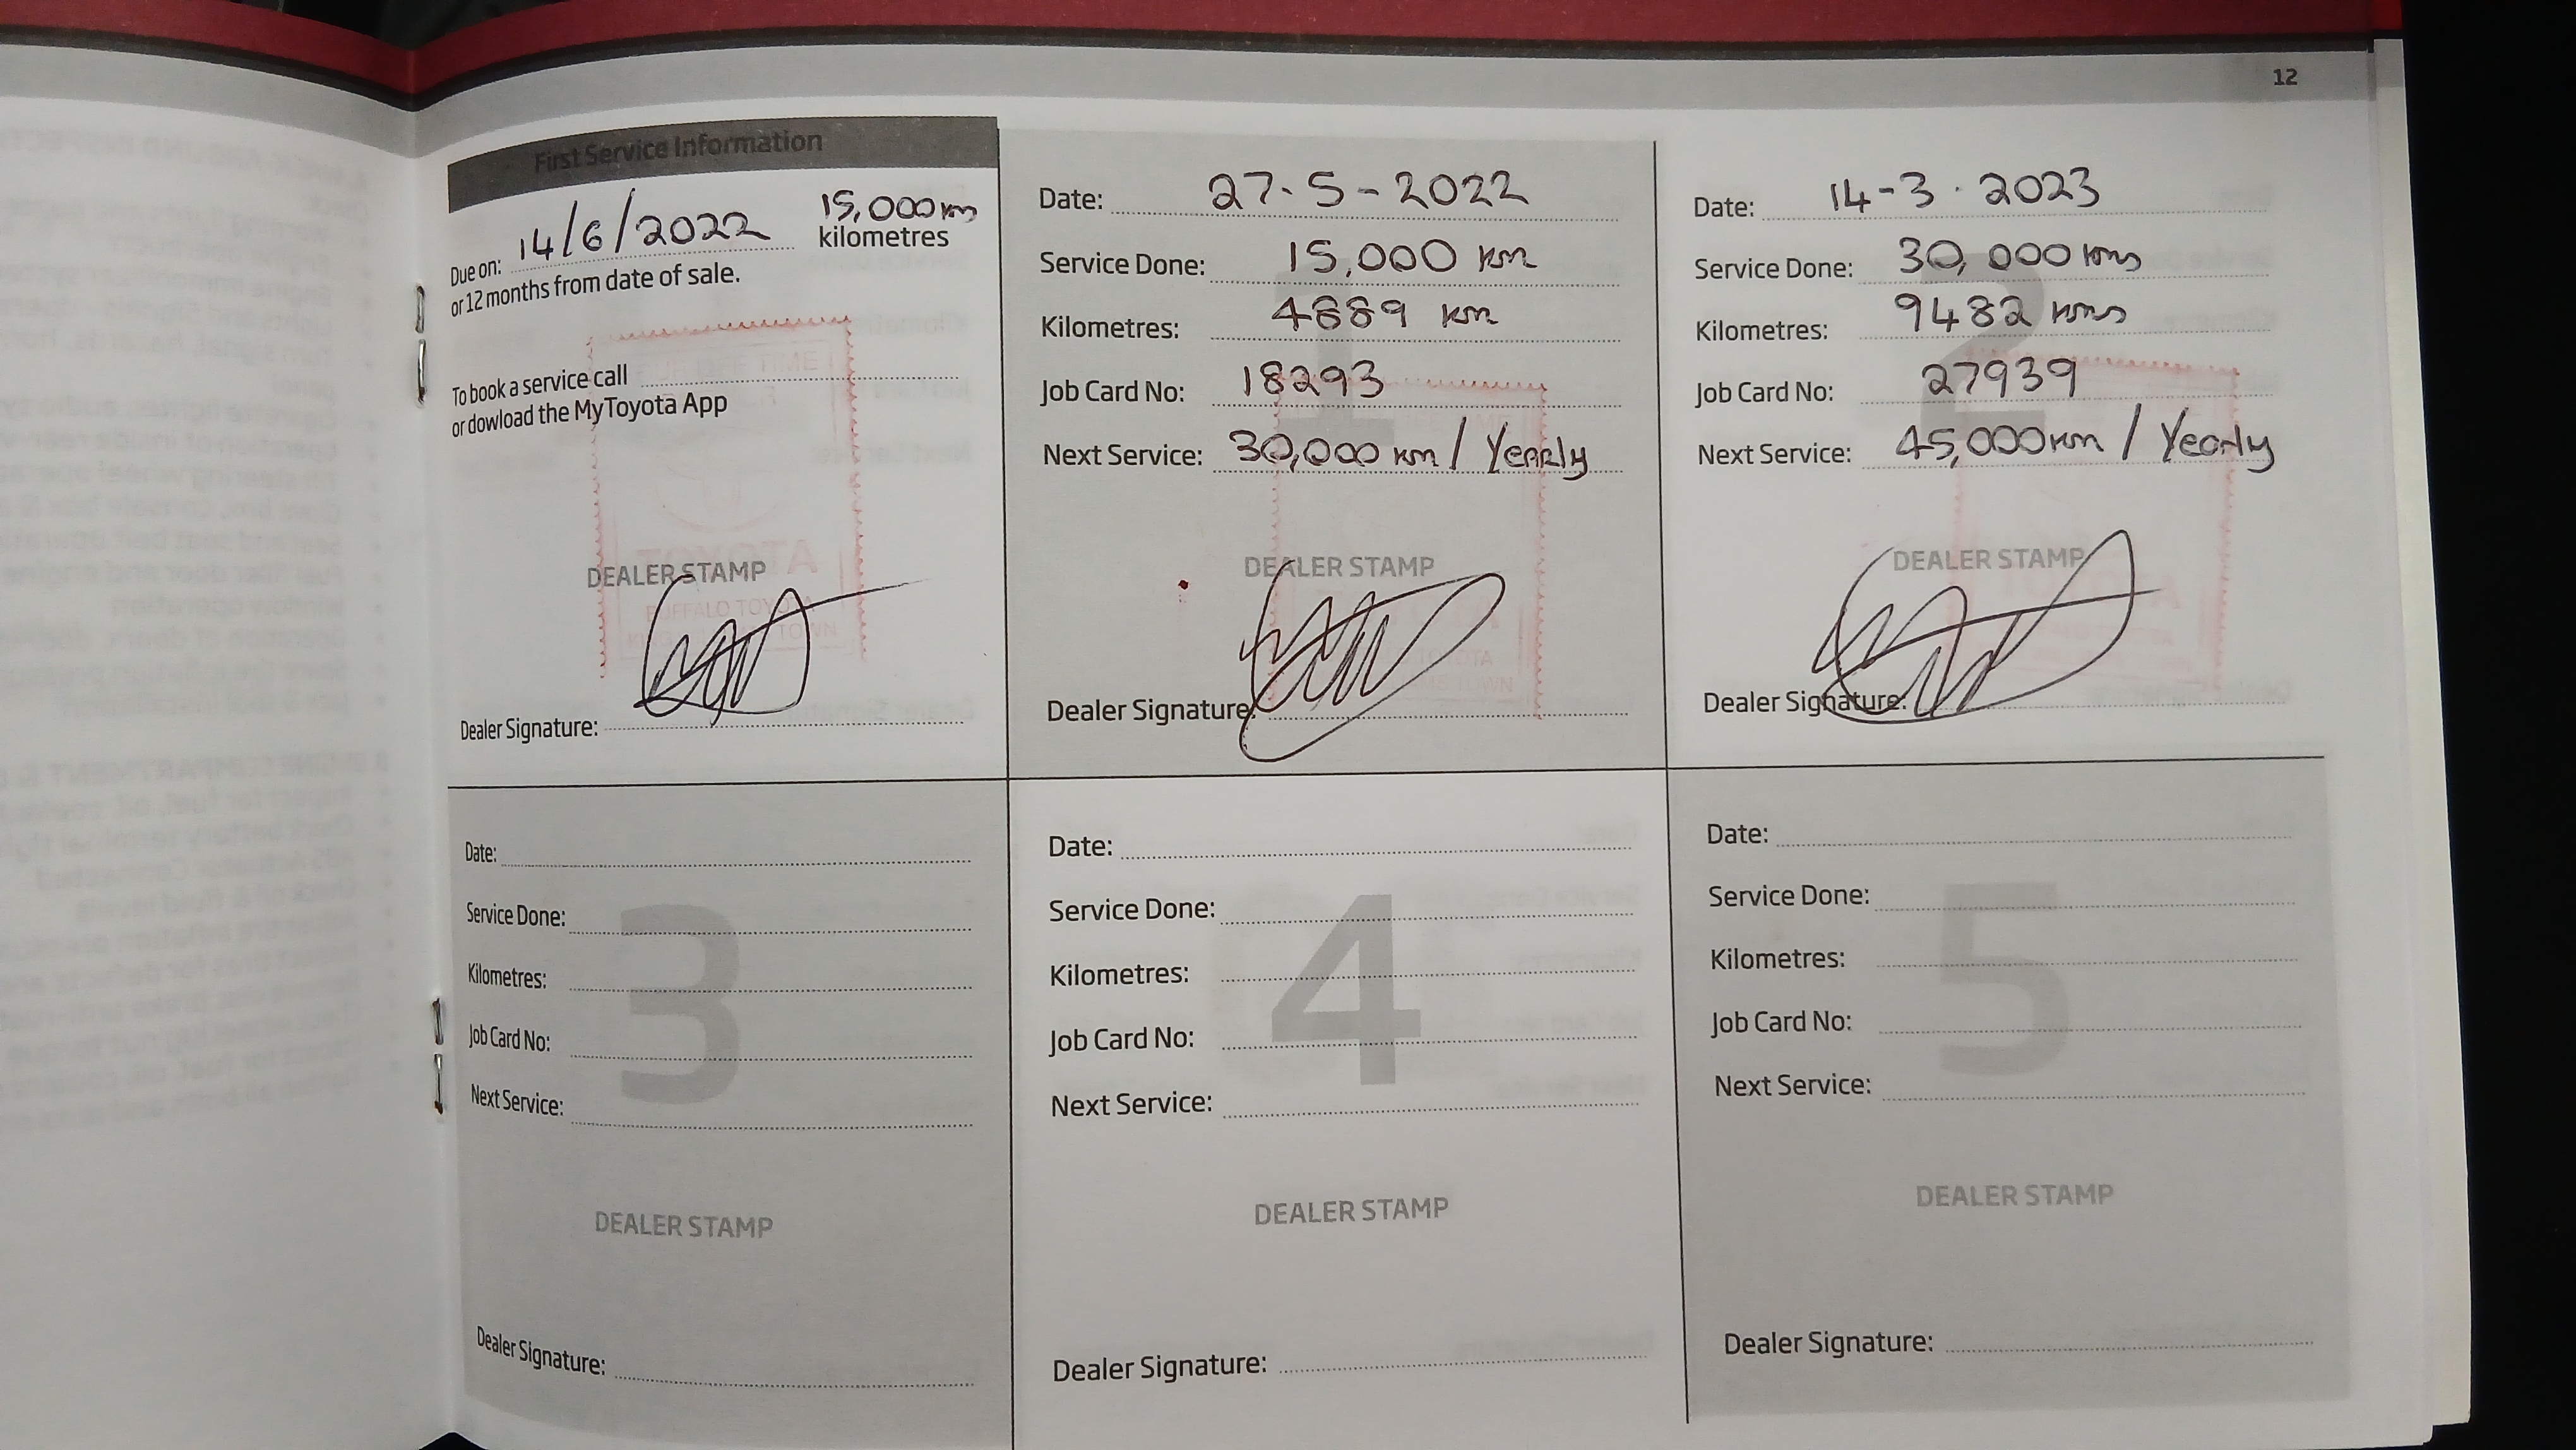 12
First Service Information
15,000 km
Due on: 14/6/2022 kilometres
or 12 months from date of sale.
To book a service call
or dowload the MyToyota App
DEALER STAMP
BUFFALO TOYOTA
Dealer Signature:
1
Date: 27-5-2022
Service Done: 15,000 km
Kilometres: 4889 km
Job Card No: 18293
Next Service: 30,000 km / Yearly
DEALER STAMP
Dealer Signature:
2
Date: 14-3-2023
Service Done: 30,000 kms
Kilometres: 9482 kms
Job Card No: 27939
Next Service: 45,000 km / Yearly
DEALER STAMP
Dealer Signature:
3
Date:
Service Done:
Kilometres:
Job Card No:
Next Service:
DEALER STAMP
Dealer Signature:
4
Date:
Service Done:
Kilometres:
Job Card No:
Next Service:
DEALER STAMP
Dealer Signature:
5
Date:
Service Done:
Kilometres:
Job Card No:
Next Service:
DEALER STAMP
Dealer Signature: